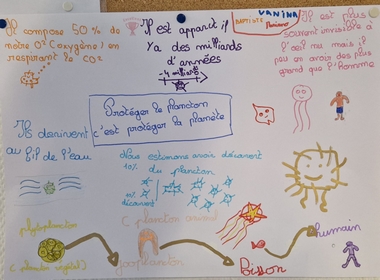 Il compose 50 % de
notre O² (oxygène) en
respirant le CO²
Il est apparut il
Y a des milliards
d'années
-4 milliards
VANINA
BAPTISTE
Il est plus
souvent invisible à
l'œil nu mais il
peu en avoir des plus
grand que l'Homme
Protéger le plancton
c'est protéger la planète
Ils dérivent
au fil de l'eau
Nous estimons avoir découvert
10% du plancton
10%
découvert
phytoplancton
(plancton végétal)
( plancton animal
zooplancton
Poisson
humain